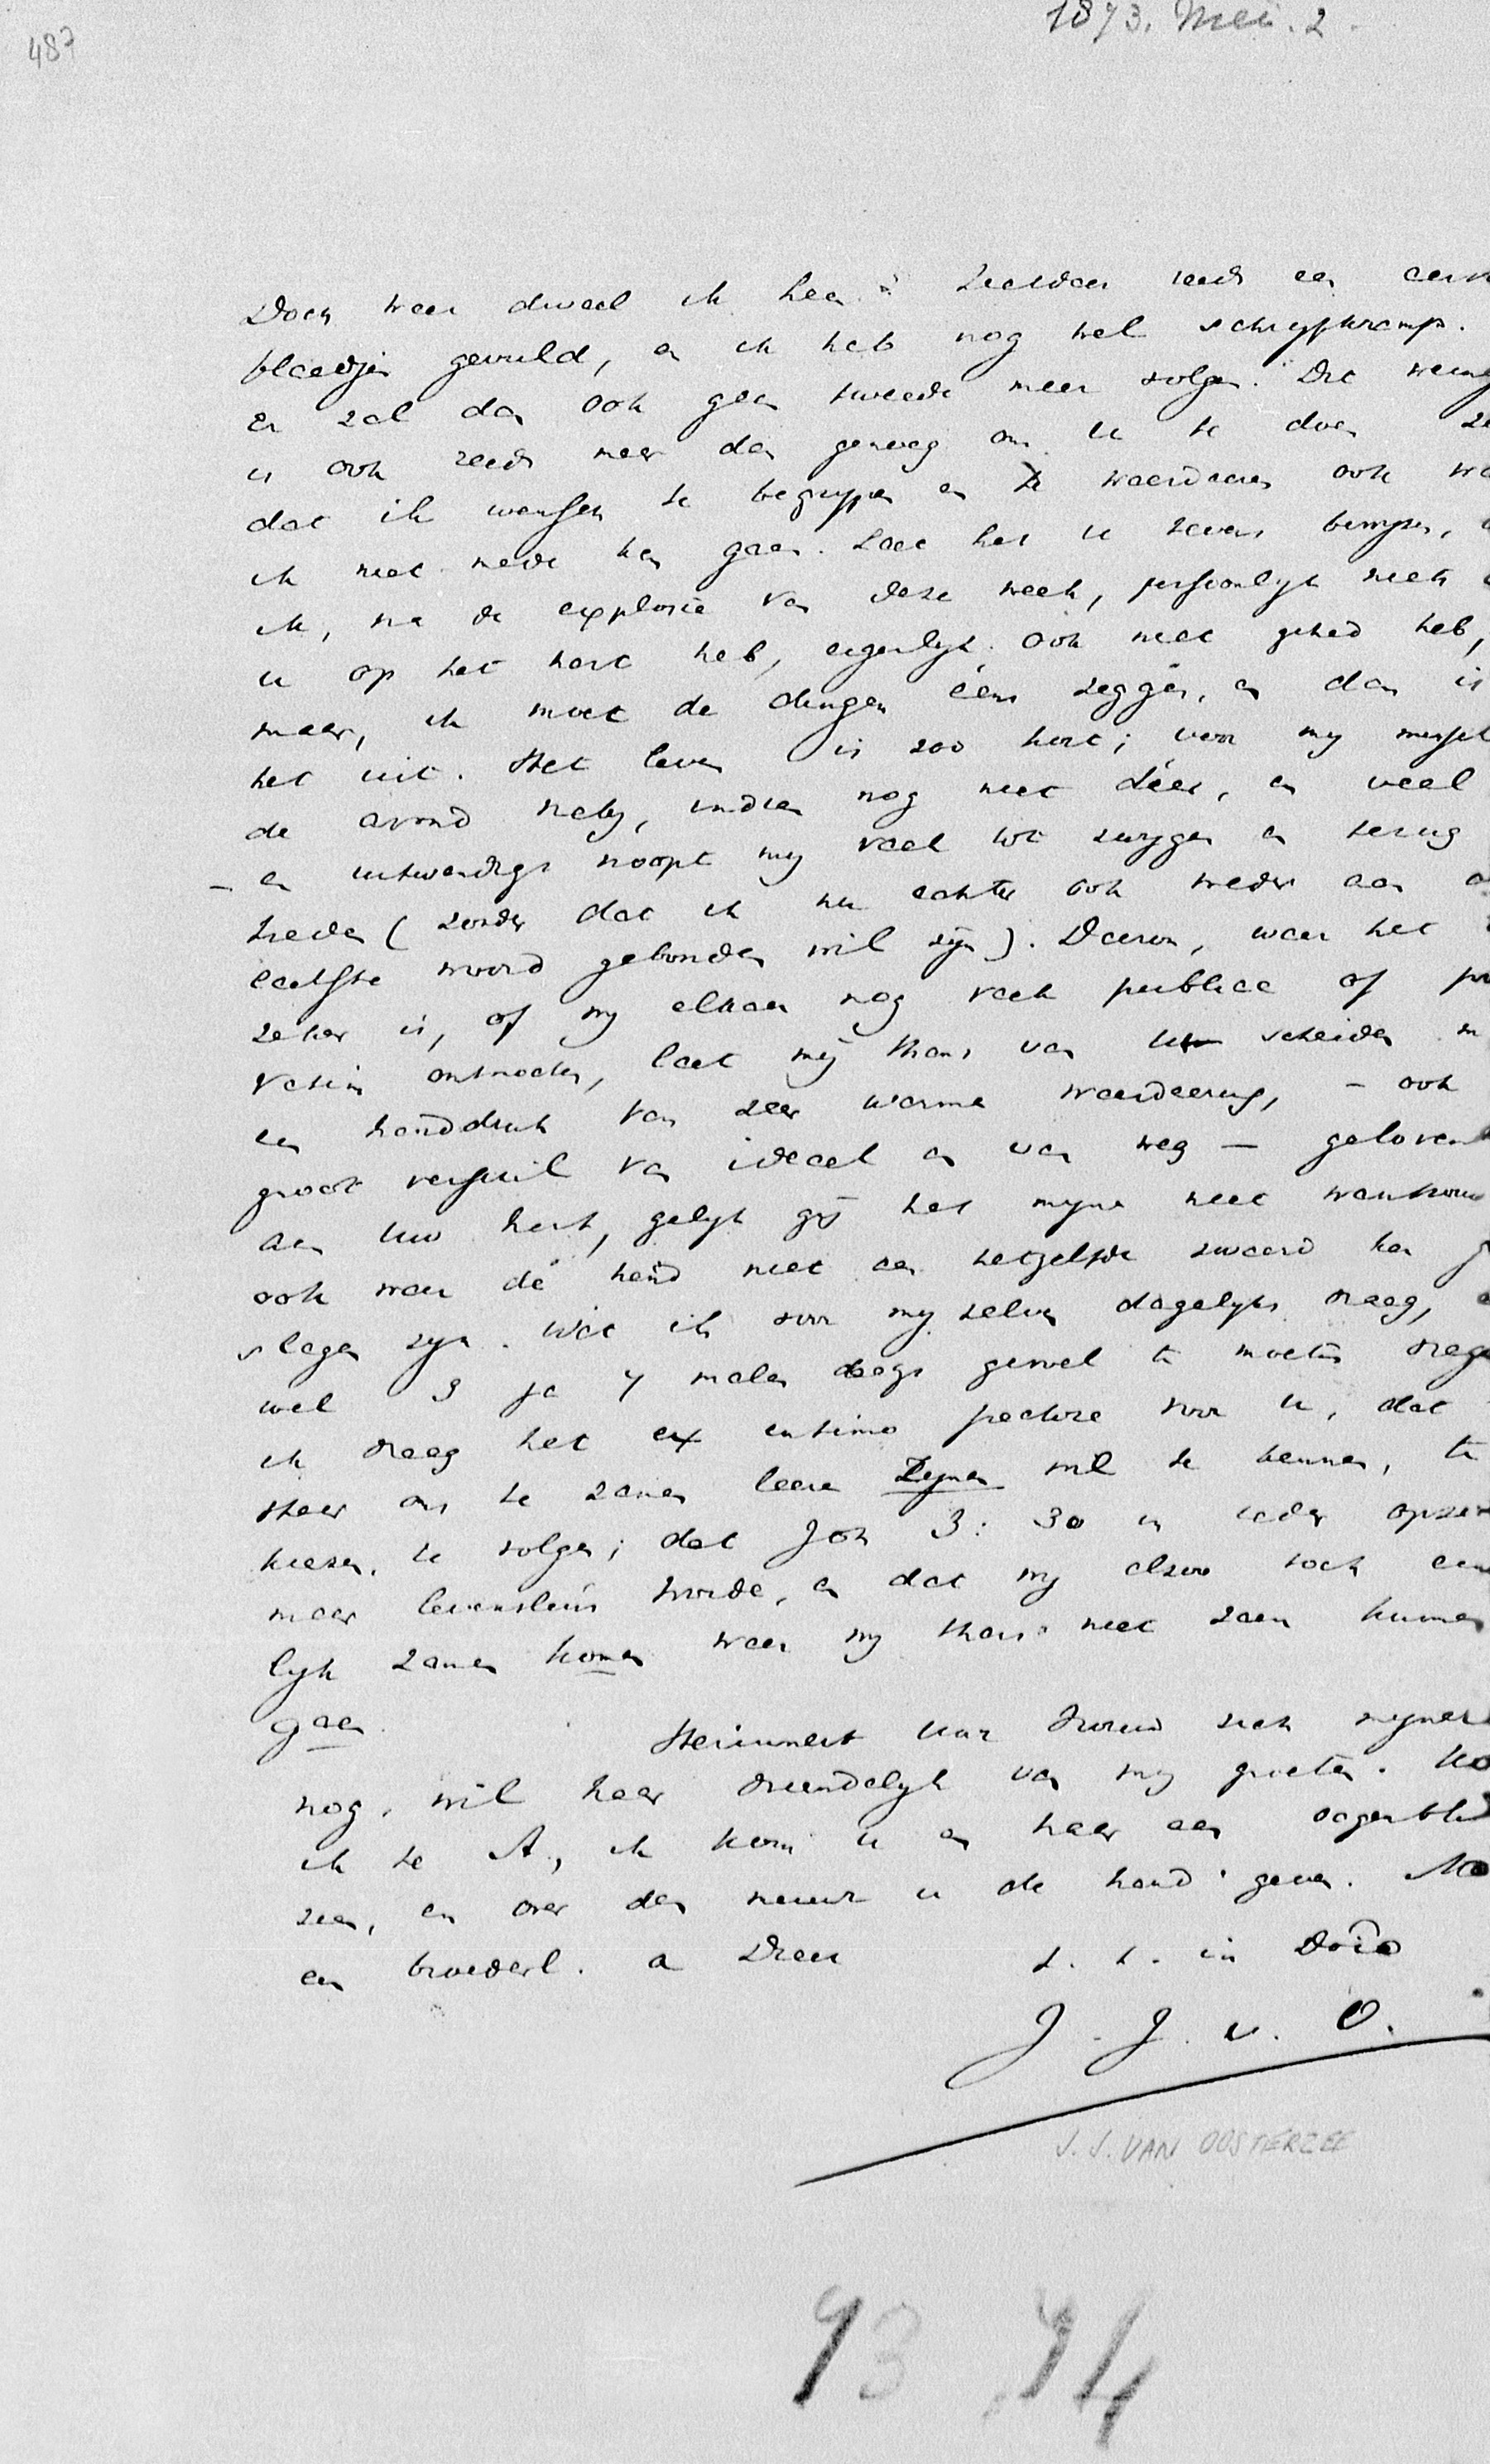 487
1873. Mei. 2.
Doch waar dwaal ik heen? zeerdaar reeds een
blaadjen gevuld, en ik heb nog wel schryfkramp.
Er zal dan ook geen tweede meer volgen. Dit
is ook reeds meer dan genoeg om u te doen
dat ik wensch te begrypen en te waardeeren ook
ik niet mede kan gaan. Laat het u tevens bewyzen,
ik, na de explosie van deze week, persoonlyk niets
u op het hart heb, eigenlyk ook niet gehad heb,
maar, ik moet de dingen ééns zeggen, en dan is
het uit. Het leven is zoo kort; voor my
de avond naby, indien nog niet dáár, en veel
- en uitwendigs noopt my vaak tot zwygen en terug
treden (zonder dat ik nu echter ook weder aan
laatste woord gebonden wil zijn). Daarom, waar het
zeker is, of wy elkaar nog vaak publice of
vatim ontmoeten, laat mij thans van u scheiden
een handdruk van zeer warme waardeering, - ook
groot verschil van ideaal en van weg -
aan uw hart, gelyk gij het myne niet
ook waar de hand niet aan hetzelfde zwaard kan
slagen zyn. Wat ik voor my zelven dagelyks vraag,
wel 3 ja 7 malen daags gevoel te moeten
ik vraag het ex intimo pectore voor u, dat
Heer ons te zamen leere Zynen wil te kennen, te
kiezen, te volgen; dat Joh 3: 30 in ieder
maar levensleus worde, en dat wy alzoo toch
lyk zamen komen waar wy thans niet zaam kunnen
gaan.
Herinnert uw vrouw zich
nog, wil haar vriendelyk van my groeten.
ik te A., ik kom u en haar een
zien, en over den muur u de hand geven.
en broederl. a Dieu t. t. in Dño
J. J. v. O.
J. J. VAN OOSTERZEE
93 94